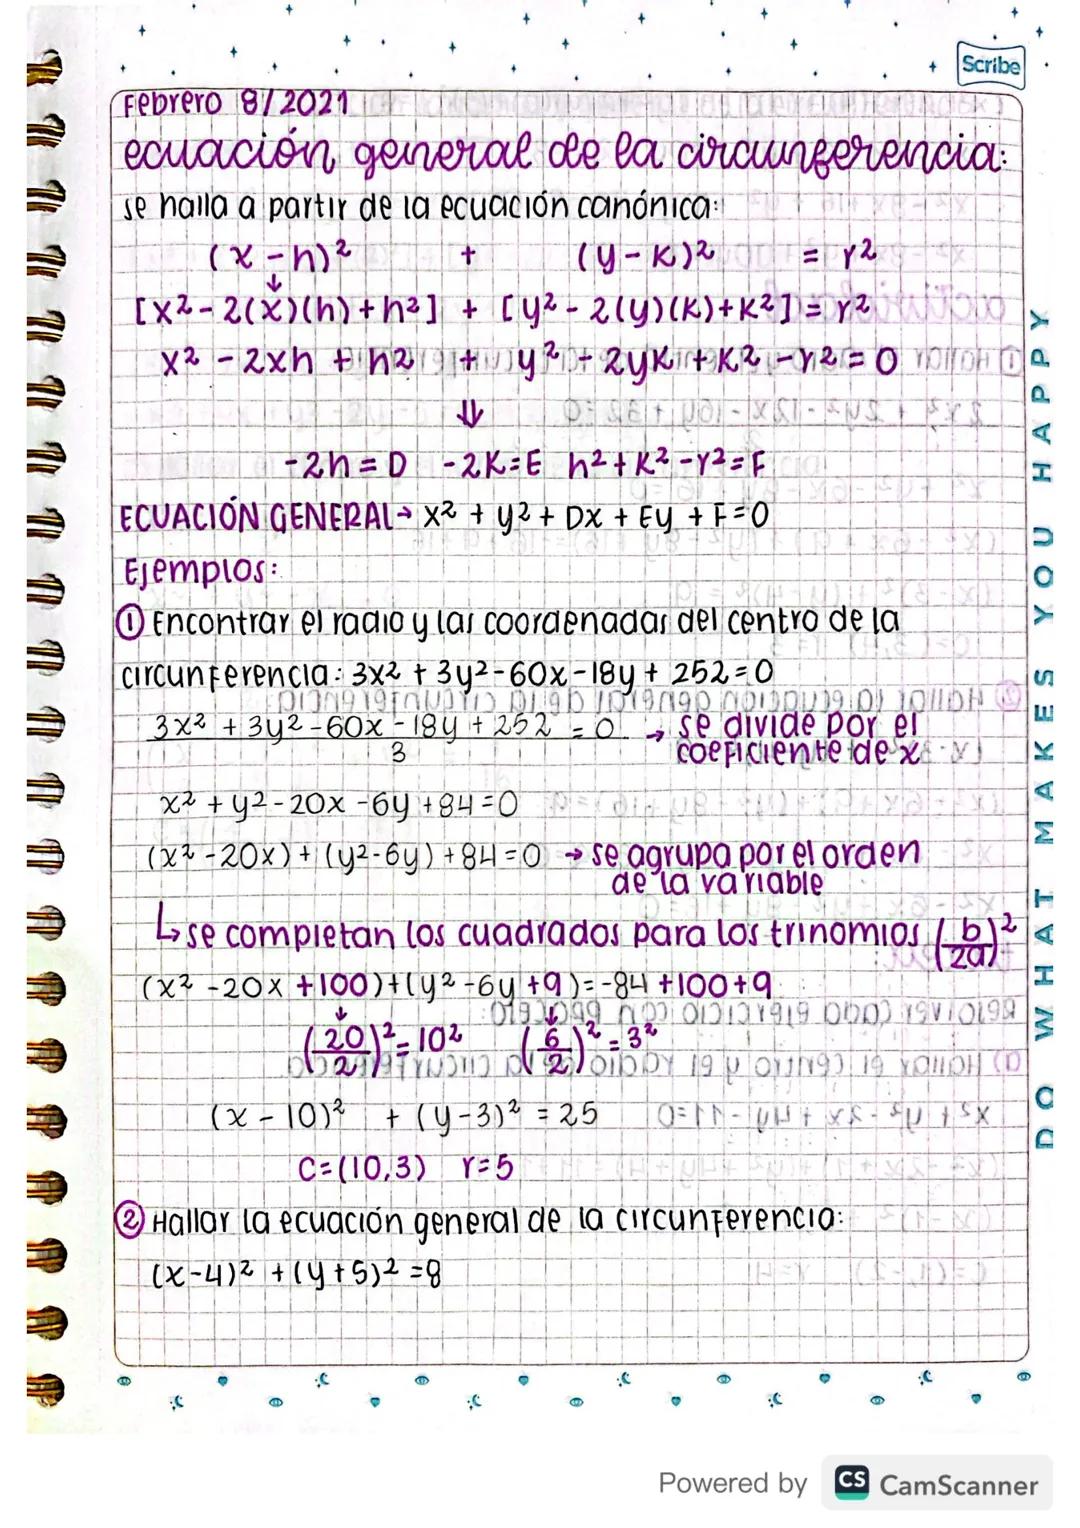 Scribe
Febrero 8/2021
ecuación general de la circunferencia:
se halla a partir de la ecuación canónica:
(x-h)² + (y-k)² = r²
[x²-2(x)(h)+h²] + [y²-2(y)(k)+k²]=r²
x² -2xh + h² + y² - 2yk + k² - r² = 0
⇓
-2h=D -2K=E h²+k²-r²=F
ECUACIÓN GENERAL→ x² + y² + Dx + Ey + F=0
Ejemplos:
① Encontrar el radio y las coordenadas del centro de la
circunferencia: 3x² + 3y²-60x-18y + 252=0
3x² + 3y² -60x -18y + 252 = 0 → se divide por el
3 coeficiente de x
x² + y² - 20x -6y +84=0
(x² -20x) + (y²-6y) +84=0 → se agrupa por el orden
de la variable
↳ se completan los cuadrados para los trinomios (b/2a)²
(x² -20x +100)+(y² -6y +9)=-84 +100+9
(20/2)²=10² (6/2)²=3²
(x - 10)² + (y-3)² = 25
C=(10,3) r=5
② Hallar la ecuación general de la circunferencia:
(x-4)² + (y+5)² =8
DO WHAT MAKES YOU HAPPY
Powered by CS CamScanner